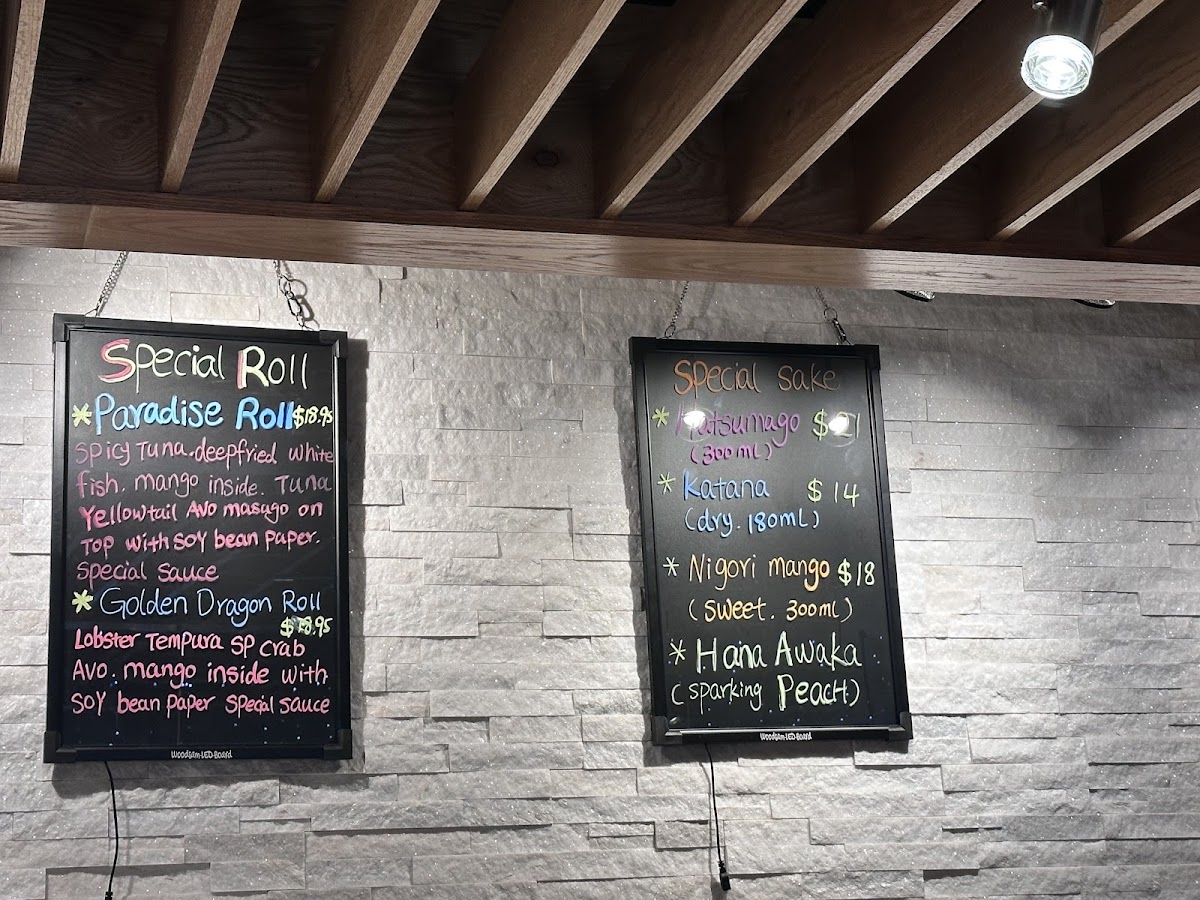 Special Roll
*Paradise Roll $18.95
Spicy Tuna.deepfried white
fish. mango inside. Tuna
Yellowtail Avo masago on
Top with soy bean paper.
special sauce
*Golden Dragon Roll
$18.95
Lobster Tempura SP crab
Avo. mango inside with
soy bean paper special sauce
Special sake
*Hatsumago $21
(300ml)
*Katana $14
(dry. 180ml)
*Nigori mango $18
(sweet. 300ml)
*Hana Awaka
(sparking Peach)